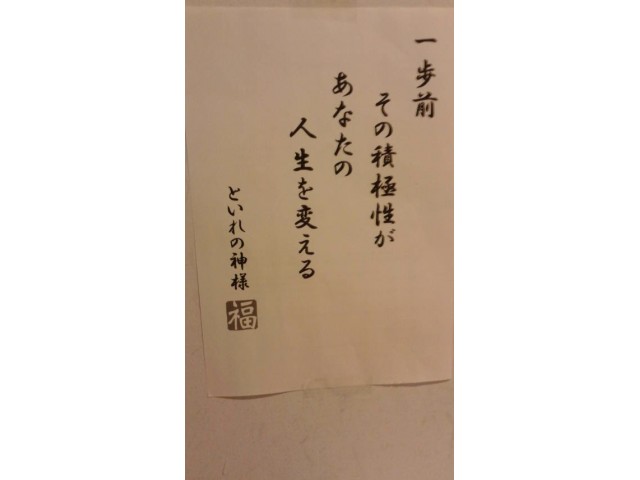 一歩前
その積極性が
あなたの
人生を変える
といれの神様
福